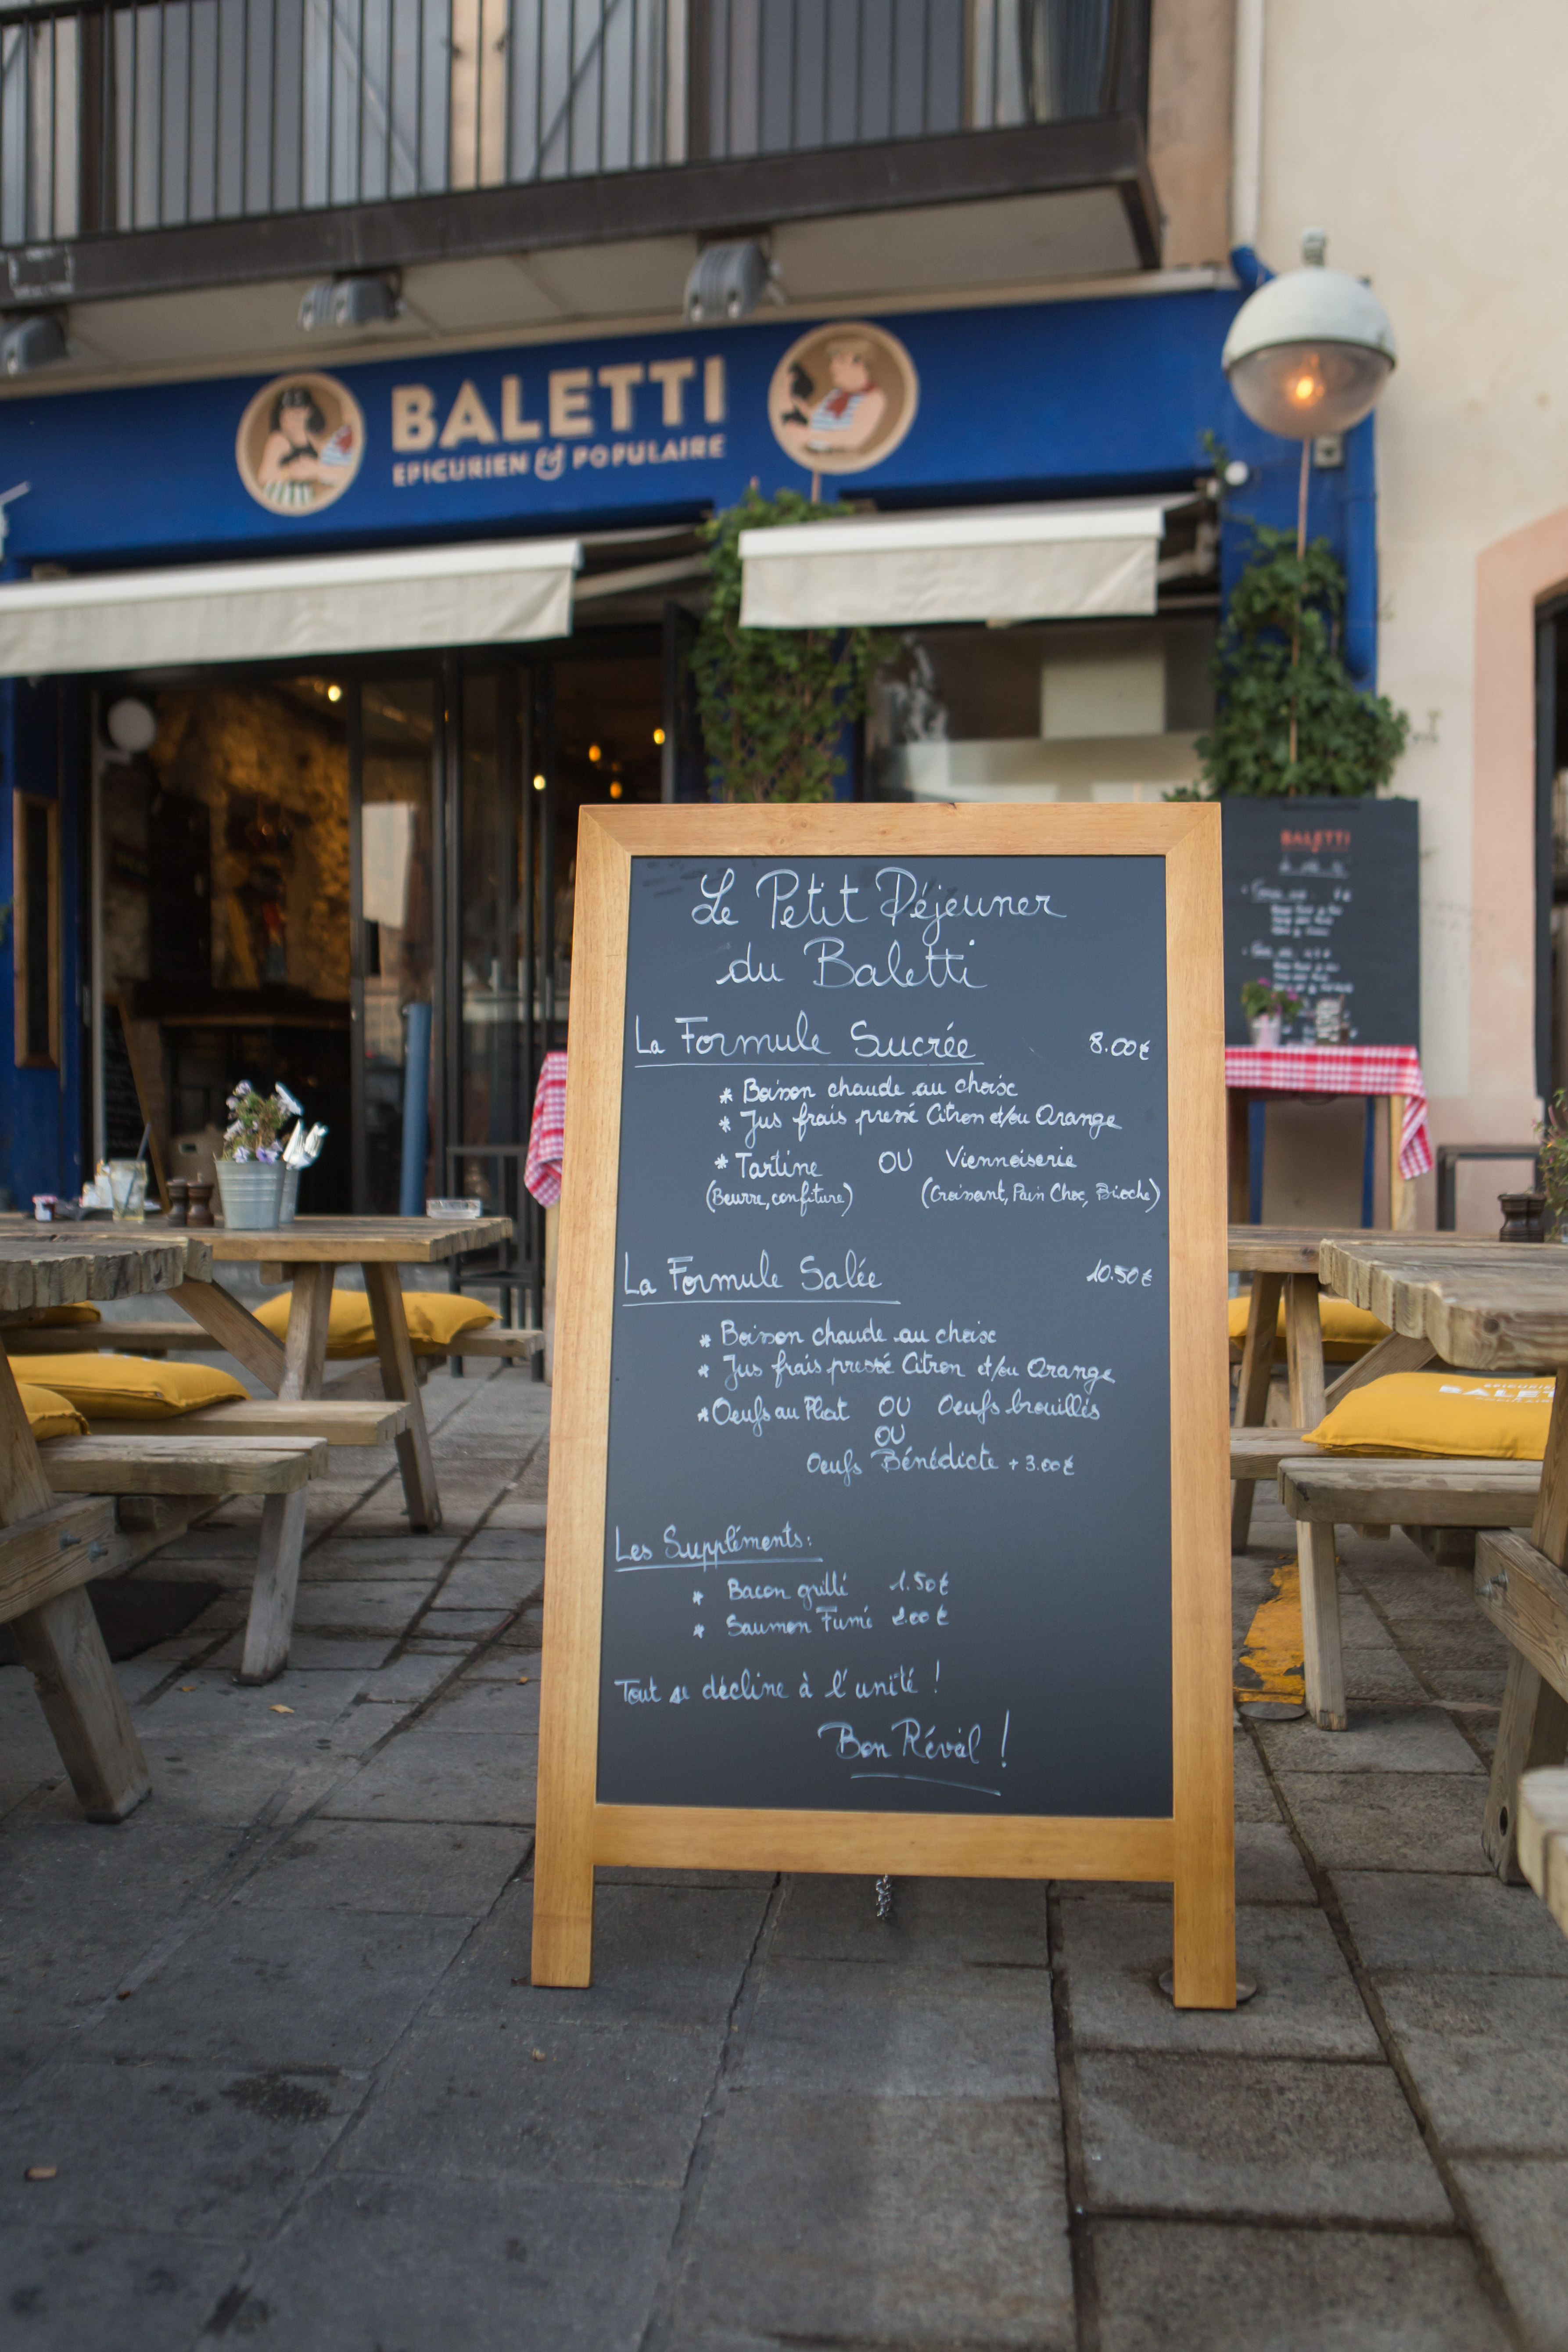 BALETTI
EPICURIEN & POPULAIRE
BALETTI
Le Petit Déjeuner
du Baletti
La Formule Sucrée 8.00€
* Boisson chaude au choix
* Jus frais pressé Citron et/ou Orange
* Tartine OU Viennoiserie
(Beurre, confiture) (Croissant, Pain Choc, Brioche)
La Formule Salée 10.50€
* Boisson chaude au choix
* Jus frais pressé Citron et/ou Orange
* Oeufs au Plat OU Oeufs brouillés
OU
Oeufs Bénédicte + 3.00€
Les Suppléments:
* Bacon grillé 1.50€
* Saumon Fumé 2.00€
Tout se décline à l'unité !
Bon Réveil !